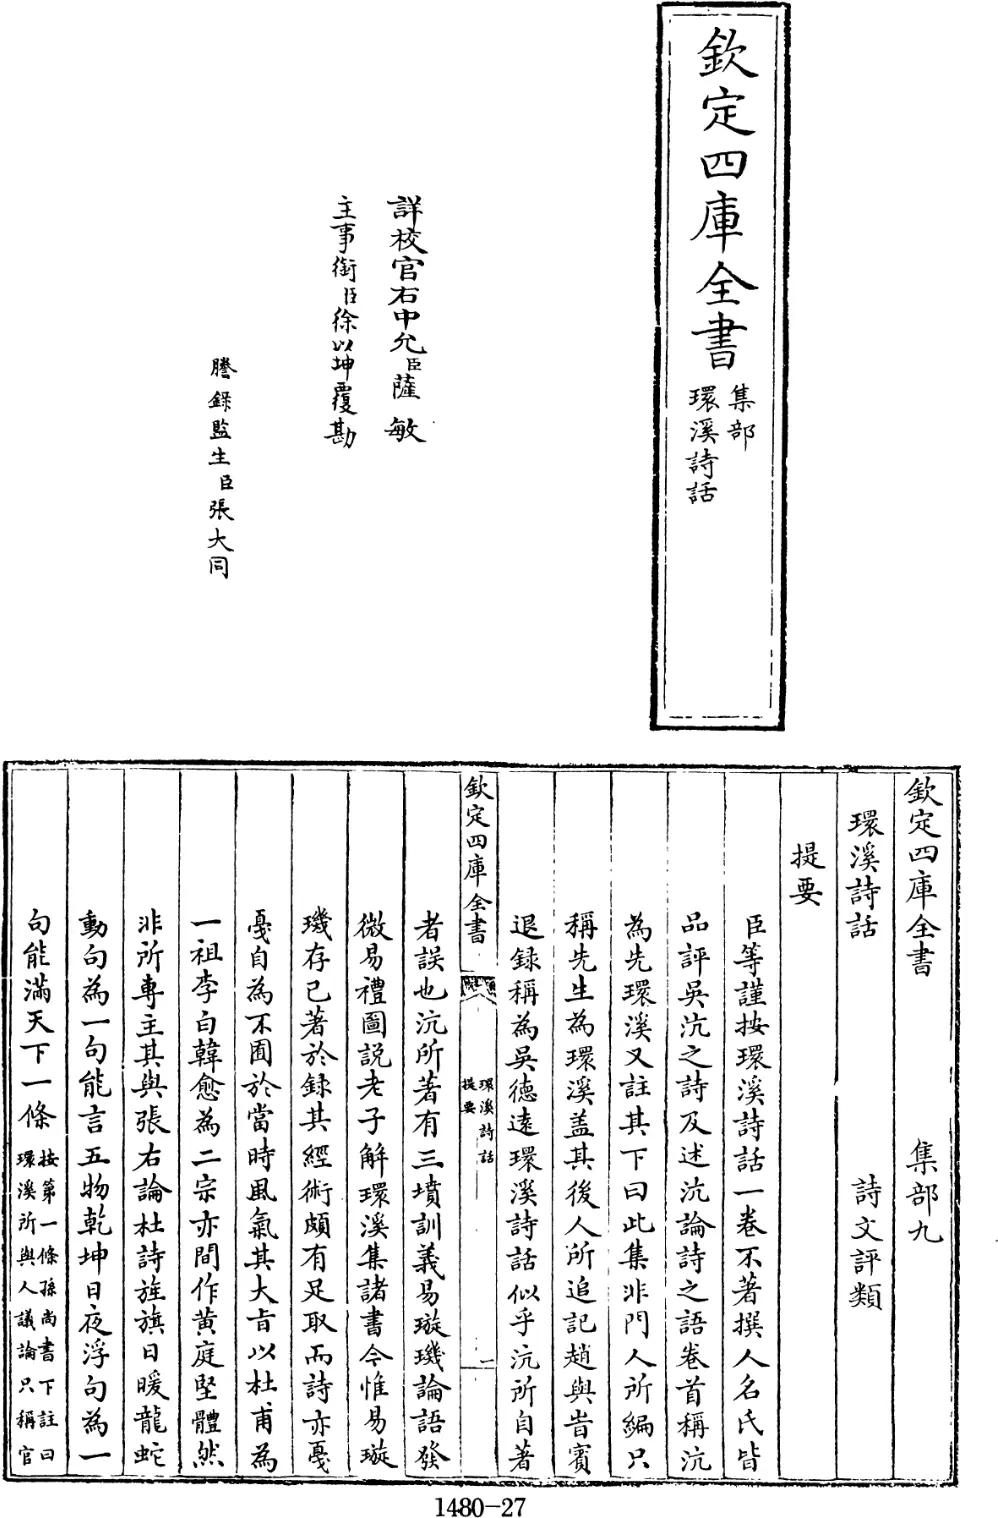 欽定四庫全書
集部
環溪詩話
詳校官右中允臣薩敏
主事銜臣徐以坤覆勘
謄錄監生臣張大同
欽定四庫全書 集部九
環溪詩話 詩文評類
提要
臣等謹按環溪詩話一卷不著撰人名氏皆
品評吳沆之詩及述沆論詩之語卷首稱沆
為先環溪又註其下曰此集非門人所編只
稱先生為環溪盖其後人所追記趙與峕賓
退録稱為吳德逺環溪詩話似乎沆所自著
欽定四庫全書
環溪詩話
提要
一
者誤也沆所著有三墳訓義易璇璣論語發
微易禮圖説老子解環溪集諸書今惟易璇
璣存已著於録其經術頗有足取而詩亦戞
戞自為不囿於當時風氣其大㫖以杜甫為
一祖李白韓愈為二宗亦間作黄庭堅體然
非所専主其與張右論杜詩旌旗日暖龍蛇
動句為一句能言五物乾坤日夜浮句為一
句能滿天下一條
按第一條孫尚書下註曰
環溪所與人議論只稱官
1480-27